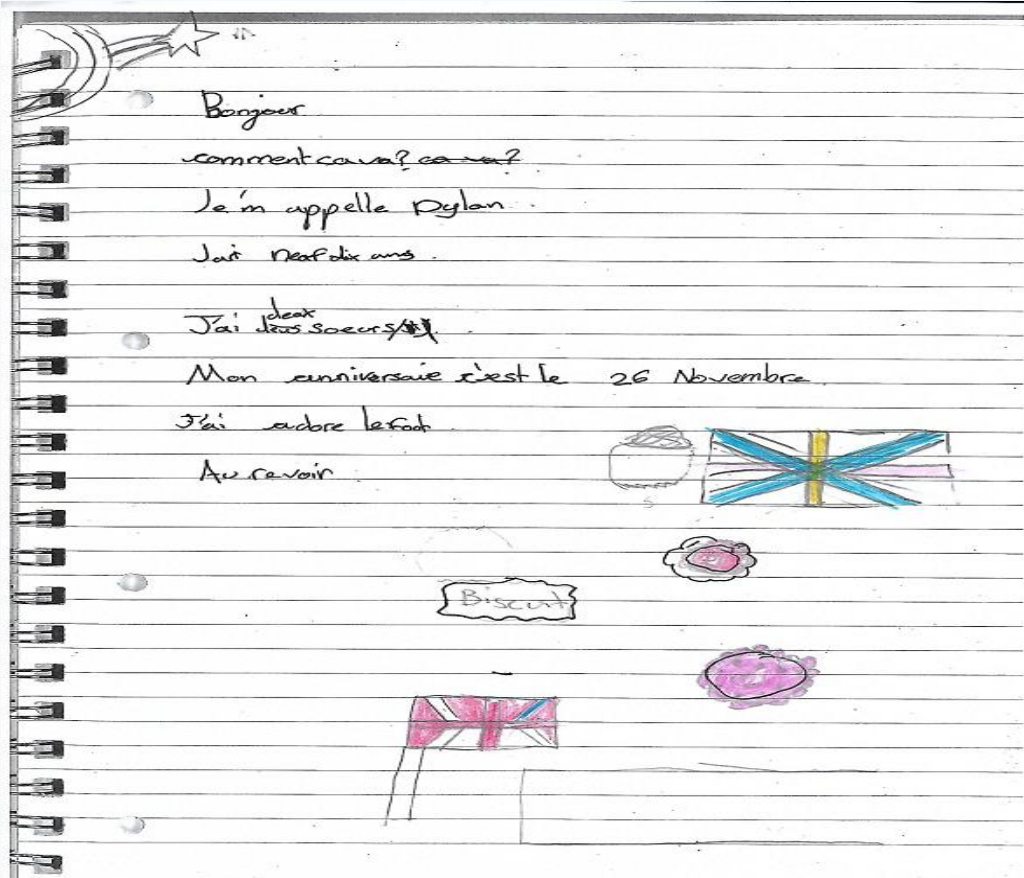 Bonjour
comment ca va? ca va?
Je'm appelle Dylan.
Jai neuf dix ans.
J'ai deux soeurs
Mon anniversaie c'est le 26 Novembre.
J'ai adore le foot
Au revoir
Biscuit